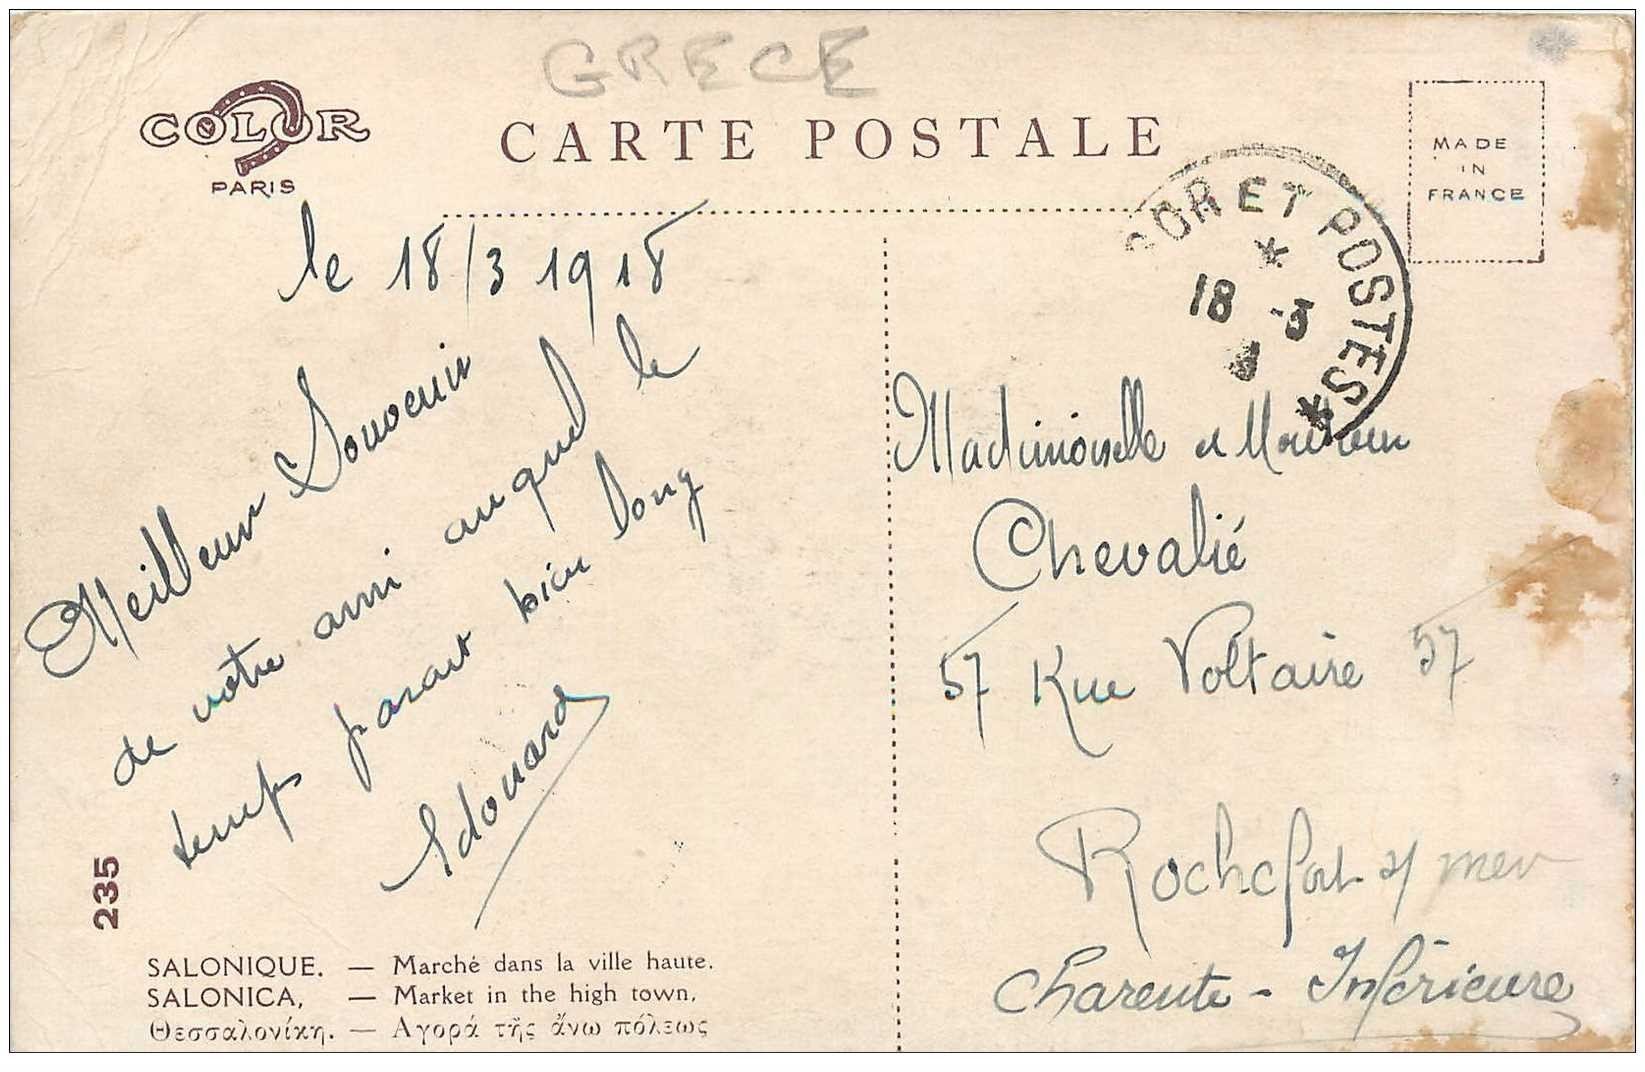 GRECE
COLOR
PARIS
CARTE POSTALE
MADE
IN
FRANCE
SOR ET POSTES
18 -3
le 18/3 1918
Meilleur Souvenir
de votre ami auquel le
temps parait bien long
Edouard
Mademoiselle et Monsieur
Chevalié
57 Rue Voltaire 57
Rochefort s/ mer
Charente-Inférieure
235
SALONIQUE. — Marché dans la ville haute.
SALONICA, — Market in the high town.
Θεσσαλονίκη. — Αγορά τῆς ἄνω πόλεως